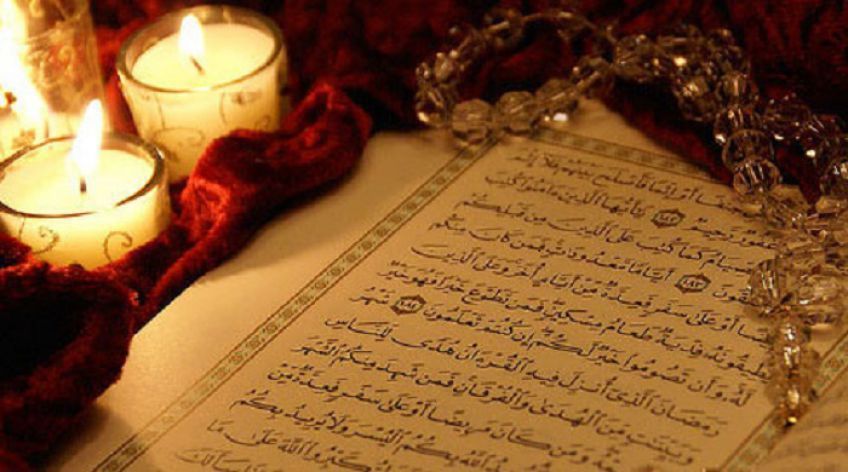 أَوْ إِثْمًا فَأَصْلَحَ بَيْنَهُمْ فَلَآ إِثْمَ
غَفُورٌ رَّحِيمٌ ١٨٢ يَٰٓأَيُّهَا ٱلَّذِينَ ءَامَنُوا۟ كُتِبَ
كَمَا كُتِبَ عَلَى ٱلَّذِينَ مِن قَبْلِكُمْ
١٨٣ أَيَّامًا مَّعْدُودَٰتٍ فَمَن كَانَ مِنكُم
أَوْ عَلَىٰ سَفَرٍ فَعِدَّةٌ مِّنْ أَيَّامٍ أُخَرَ وَعَلَى ٱلَّذِينَ
يُطِيقُونَهُۥ فِدْيَةٌ طَعَامُ مِسْكِينٍ فَمَن تَطَوَّعَ خَيْرًا فَهُوَ خَيْرٌ
لَّهُۥ وَأَن تَصُومُوا۟ خَيْرٌ لَّكُمْ إِن كُنتُمْ تَعْلَمُونَ ١٨٤ شَهْرُ
رَمَضَانَ ٱلَّذِىٓ أُنزِلَ فِيهِ ٱلْقُرْءَانُ هُدًى لِّلنَّاسِ
وَبَيِّنَٰتٍ مِّنَ ٱلْهُدَىٰ وَٱلْفُرْقَانِ فَمَن شَهِدَ مِنكُمُ ٱلشَّهْرَ
وَمَن كَانَ مَرِيضًا أَوْ عَلَىٰ سَفَرٍ فَعِدَّةٌ مِّنْ
ٱللَّهُ بِكُمُ ٱلْيُسْرَ وَلَا يُرِيدُ بِكُمُ
ٱللَّهَ عَلَىٰ مَا